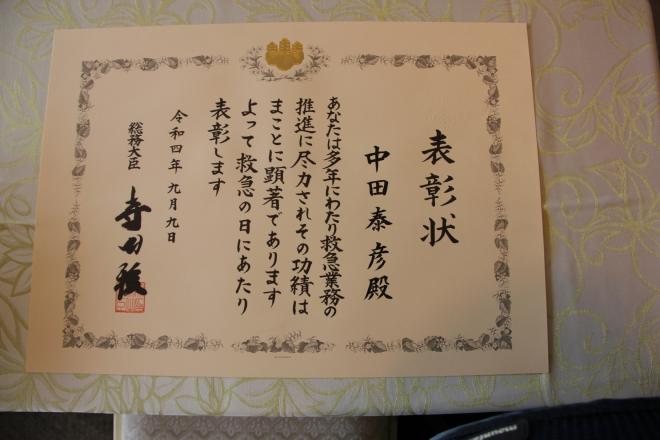 表彰状
中田泰彦殿
あなたは多年にわたり救急業務の
推進に尽力されその功績は
まことに顕著であります
よって救急の日にあたり
表彰します
令和四年九月九日
総務大臣
寺田稔